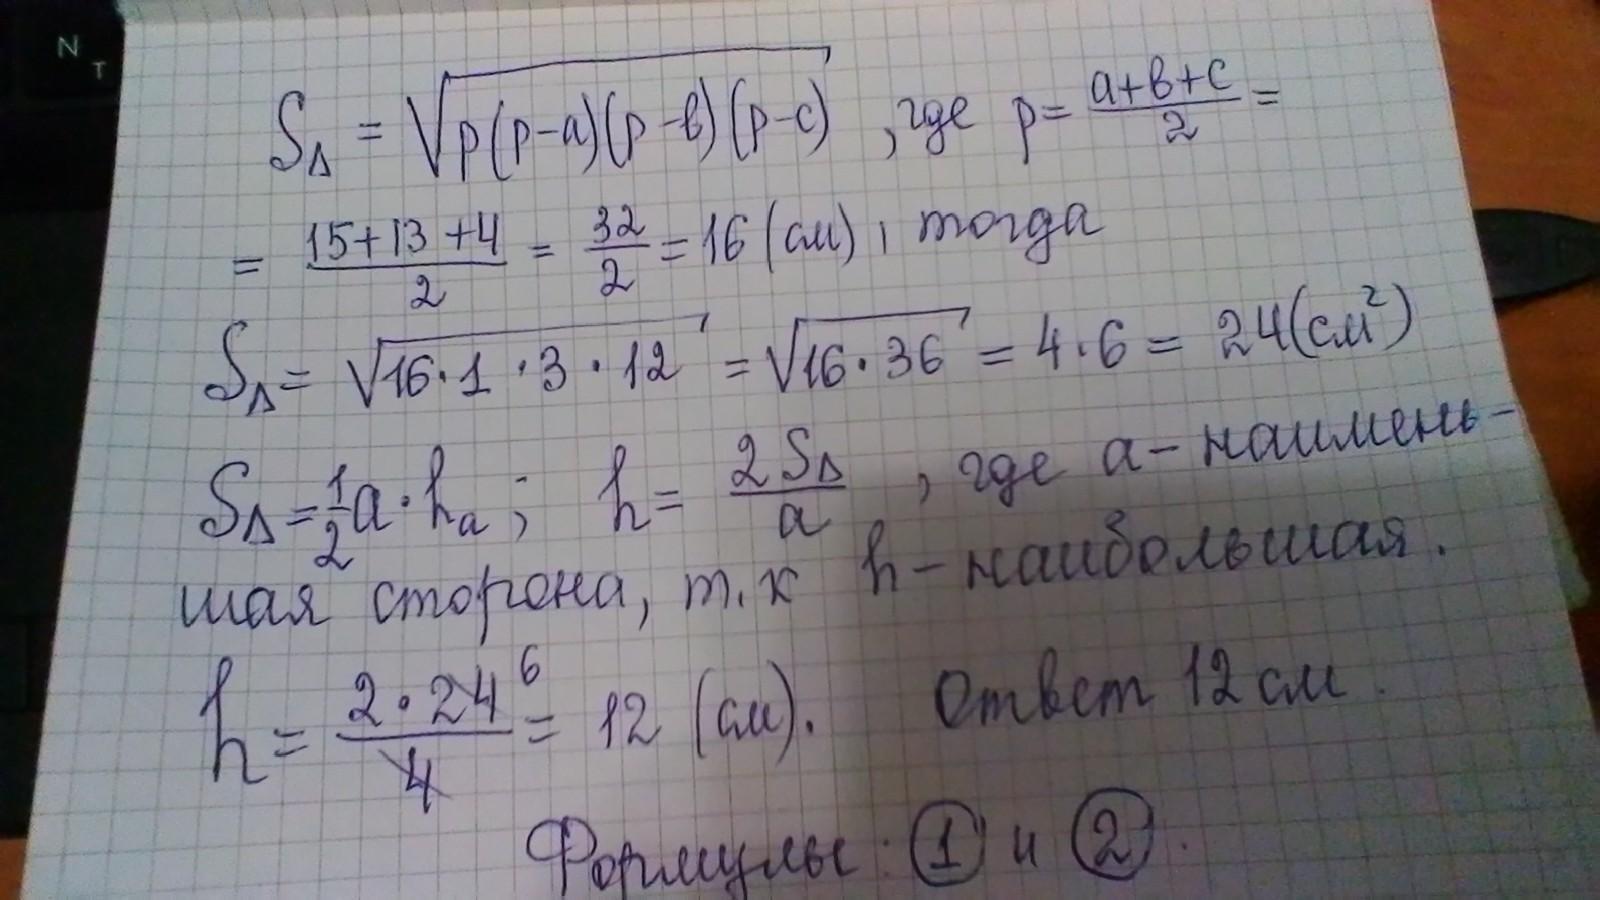 N
T
S∆ = √p(p-a)(p-в)(p-c) , где p = (a+в+c)/2 =
= (15+13+4)/2 = 32/2 = 16 (см), тогда
S∆ = √16·1·3·12 = √16·36 = 4·6 = 24(см²)
S∆ = 1/2 a·hₐ; h = 2S∆/a , где a - наимень-
шая сторона, т.к h - наибольшая.
h = 2·24 6/4 = 12 (см). Ответ 12 см.
Формулы: ① и ②.